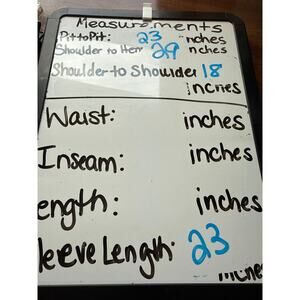 Measurements
Pit to Pit: 23 inches
Shoulder to Hem 29 nches
Shoulder to Shoulder 18
inches
Waist: inches
Inseam: inches
ength: inches
leeve Length: 23
inches